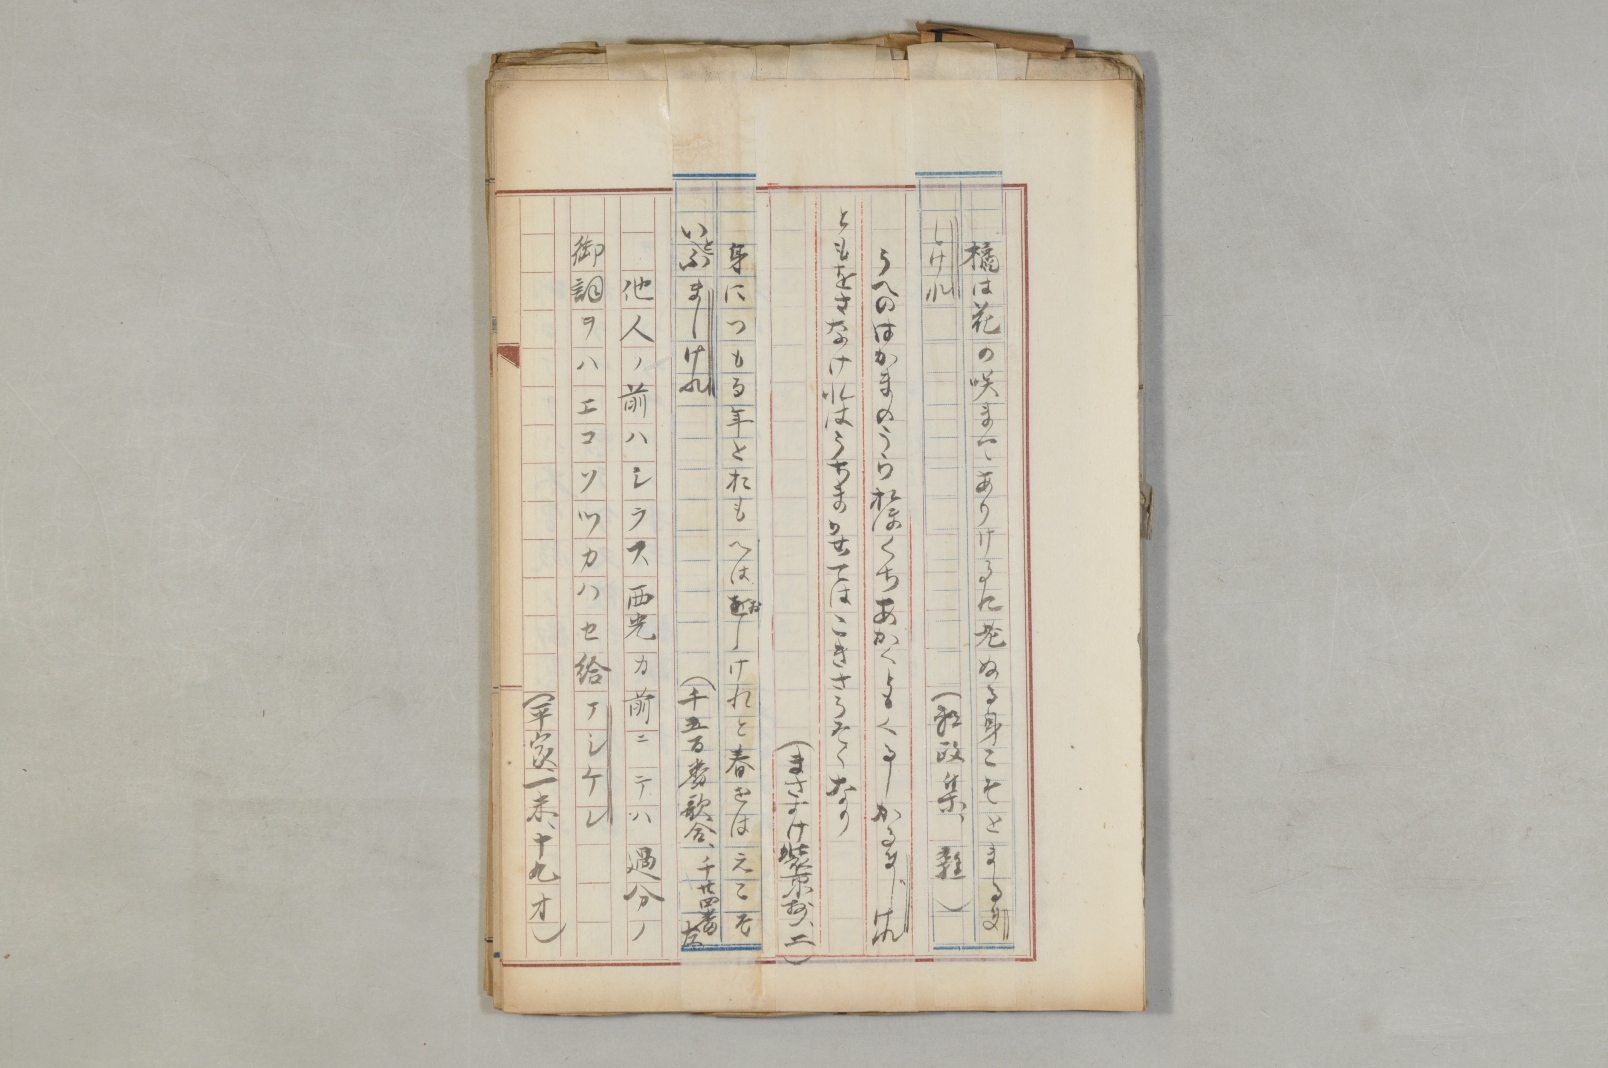 橘は花の咲まてありけるに老ぬる身こそとまるま
しけれ
(頼政集、雑)
うへのはかまのうらおほくちあかくともくるしかるましけれ
ともをさなけれはうちまかせてはこきさうそくなり
(まさすけ装束抄、二)
身につもる年とおもへはおしけれと春をはえこそ
いとふましけれ
(千五百番歌合、千廿四番左
他人ノ前ハシラス西光カ前ニテハ過分ノ
御詞ヲハエコソツカハセ給アシケレ
(平家、一末、十九オ)